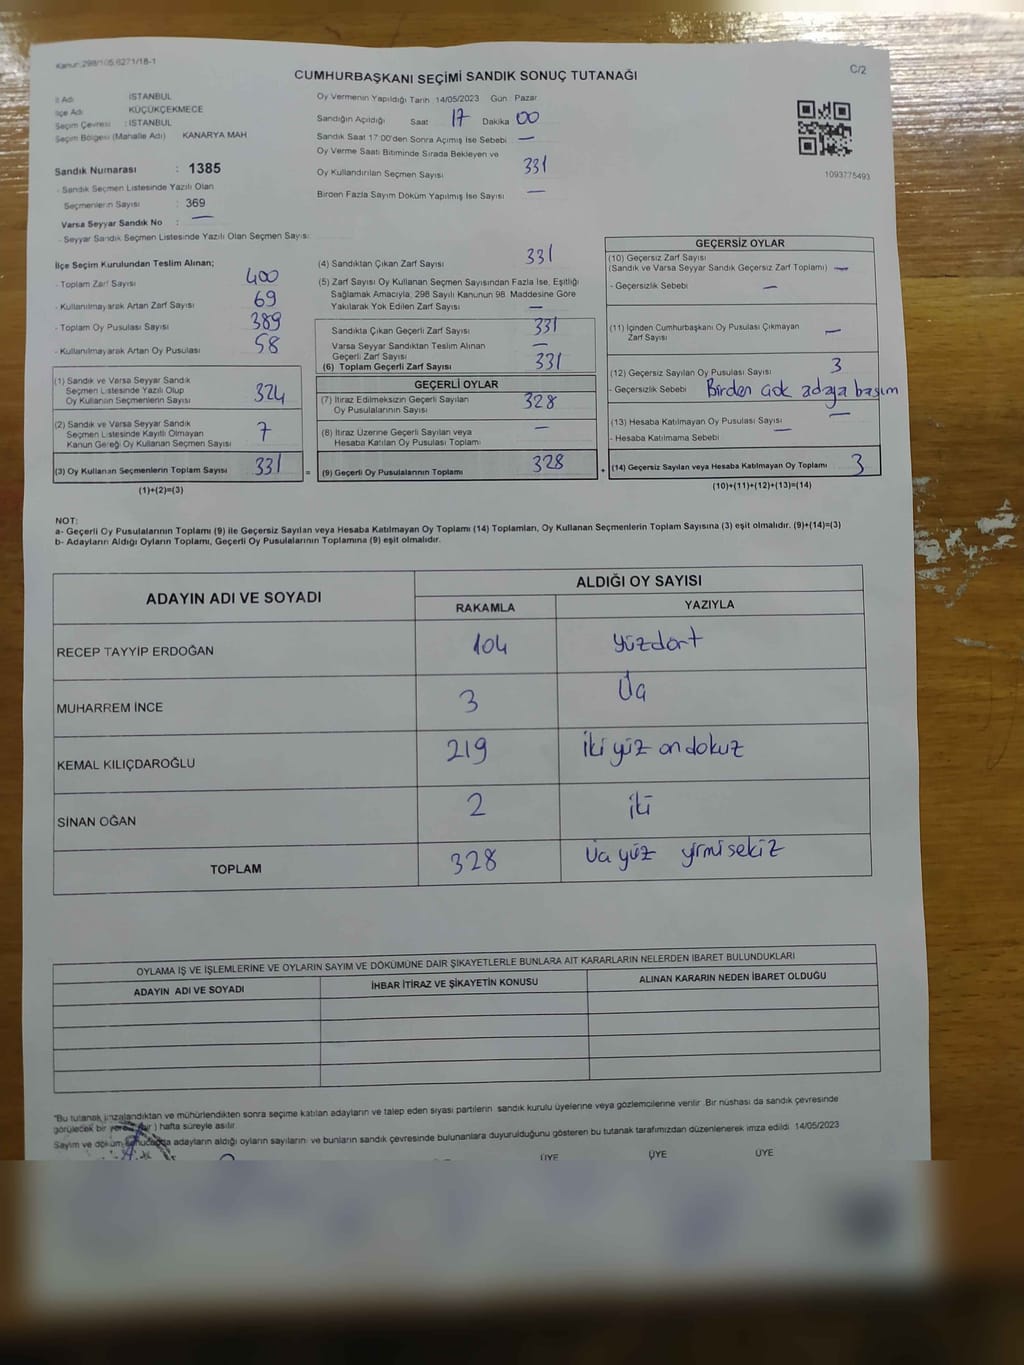 Kanun:298/105,6271/18-1
C/2
CUMHURBAŞKANI SEÇİMİ SANDIK SONUÇ TUTANAĞI
İl Adı İSTANBUL
İlçe Adı KÜÇÜKÇEKMECE
Seçim Çevresi : İSTANBUL
Seçim Bölgesi (Mahalle Adı) KANARYA MAH
Sandık Numarası : 1385
- Sandık Seçmen Listesinde Yazılı Olan
Seçmenlerin Sayısı : 369
Varsa Seyyar Sandık No : —
- Seyyar Sandık Seçmen Listesinde Yazılı Olan Seçmen Sayısı:
Oy Vermenin Yapıldığı Tarih 14/05/2023 Gün Pazar
Sandığın Açıldığı Saat 17 Dakika 00
Sandık Saat 17:00'den Sonra Açılmış İse Sebebi —
Oy Verme Saati Bitiminde Sırada Bekleyen ve
Oy Kullandırılan Seçmen Sayısı 331
Birden Fazla Sayım Döküm Yapılmış İse Sayısı —
1093775493
İlçe Seçim Kurulundan Teslim Alınan;
- Toplam Zarf Sayısı 400
- Kullanılmayarak Artan Zarf Sayısı 69
- Toplam Oy Pusulası Sayısı 389
- Kullanılmayarak Artan Oy Pusulası 58
(1) Sandık ve Varsa Seyyar Sandık
Seçmen Listesinde Yazılı Olup
Oy Kullanan Seçmenlerin Sayısı 324
(2) Sandık ve Varsa Seyyar Sandık
Seçmen Listesinde Kayıtlı Olmayan
Kanun Gereği Oy Kullanan Seçmen Sayısı 7
(3) Oy Kullanan Seçmenlerin Toplam Sayısı 331 =
(1)+(2)=(3)
(4) Sandıktan Çıkan Zarf Sayısı 331
(5) Zarf Sayısı Oy Kullanan Seçmen Sayısından Fazla İse, Eşitliği
Sağlamak Amacıyla, 298 Sayılı Kanunun 98. Maddesine Göre
Yakılarak Yok Edilen Zarf Sayısı —
Sandıkta Çıkan Geçerli Zarf Sayısı 331
Varsa Seyyar Sandıktan Teslim Alınan
Geçerli Zarf Sayısı —
(6) Toplam Geçerli Zarf Sayısı 331
GEÇERLİ OYLAR
(7) İtiraz Edilmeksizin Geçerli Sayılan
Oy Pusulalarının Sayısı 328
(8) İtiraz Üzerine Geçerli Sayılan veya
Hesaba Katılan Oy Pusulası Toplamı —
(9) Geçerli Oy Pusulalarının Toplamı 328 +
GEÇERSİZ OYLAR
(10) Geçersiz Zarf Sayısı
(Sandık ve Varsa Seyyar Sandık Geçersiz Zarf Toplamı) —
- Geçersizlik Sebebi —
(11) İçinden Cumhurbaşkanı Oy Pusulası Çıkmayan
Zarf Sayısı —
(12) Geçersiz Sayılan Oy Pusulası Sayısı 3
- Geçersizlik Sebebi Birden çok adaya basım
(13) Hesaba Katılmayan Oy Pusulası Sayısı —
- Hesaba Katılmama Sebebi —
(14) Geçersiz Sayılan veya Hesaba Katılmayan Oy Toplamı 3
(10)+(11)+(12)+(13)=(14)
NOT:
a- Geçerli Oy Pusulalarının Toplamı (9) ile Geçersiz Sayılan veya Hesaba Katılmayan Oy Toplamı (14) Toplamları, Oy Kullanan Seçmenlerin Toplam Sayısına (3) eşit olmalıdır. (9)+(14)=(3)
b- Adayların Aldığı Oyların Toplamı, Geçerli Oy Pusulalarının Toplamına (9) eşit olmalıdır.
ADAYIN ADI VE SOYADI ALDIĞI OY SAYISI
RAKAMLA YAZIYLA
RECEP TAYYİP ERDOĞAN 104 yüzdört
MUHARREM İNCE 3 Üç
KEMAL KILIÇDAROĞLU 219 İki yüz on dokuz
SİNAN OĞAN 2 iki
TOPLAM 328 Üç yüz yirmi sekiz
OYLAMA İŞ VE İŞLEMLERİNE VE OYLARIN SAYIM VE DÖKÜMÜNE DAİR ŞİKAYETLERLE BUNLARA AİT KARARLARIN NELERDEN İBARET BULUNDUKLARI
ADAYIN ADI VE SOYADI İHBAR İTİRAZ VE ŞİKAYETİN KONUSU ALINAN KARARIN NEDEN İBARET OLDUĞU
*Bu tutanak imzalandıktan ve mühürlendikten sonra seçime katılan adayların ve talep eden siyasi partilerin sandık kurulu üyelerine veya gözlemcilerine verilir. Bir nüshası da sandık çevresinde
görülecek bir yere ) hafta süreyle asılır.
Sayım ve döküm sonucunda adayların aldığı oyların sayılarını ve bunların sandık çevresinde bulunanlara duyurulduğunu gösteren bu tutanak tarafımızdan düzenlenerek imza edildi. 14/05/2023
ÜYE ÜYE ÜYE